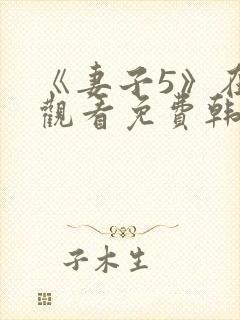 《妻子5》在
觀看免費韩
子木生